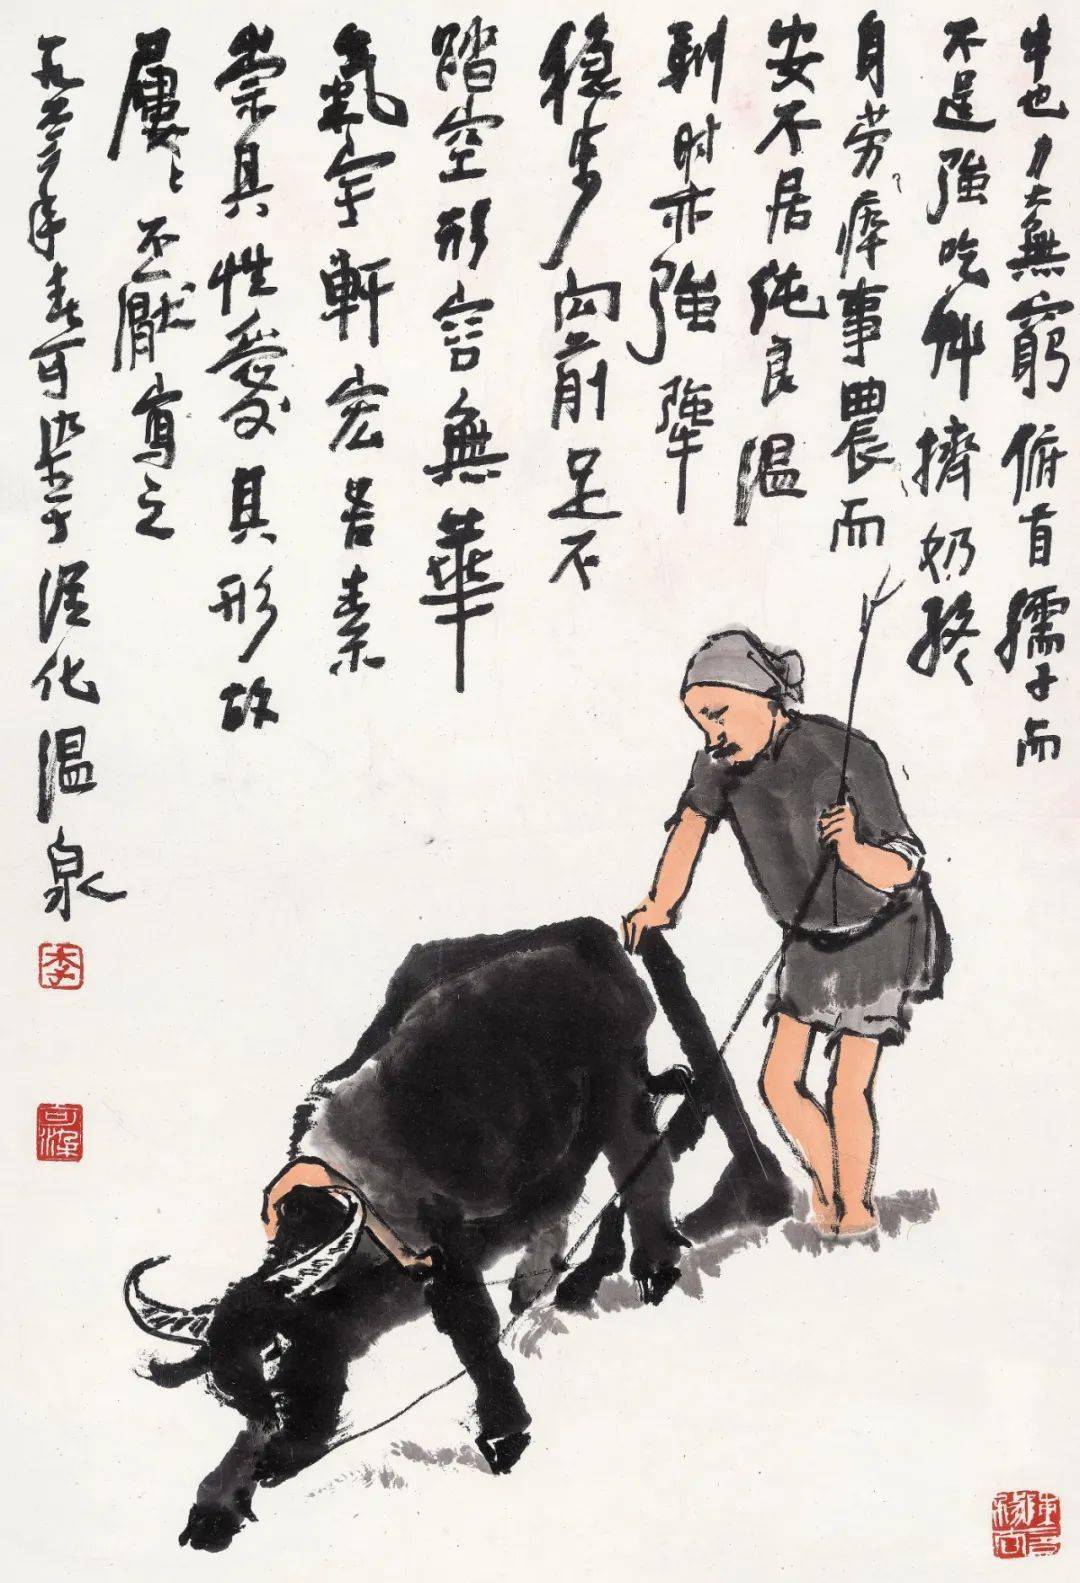 牛也力大無窮俯首孺子而
不逞強吃艸擠奶終
身劳瘁事農而
安不居純良温
馴时亦強犟
穩步向前足不
踏空形容無華
氣宇軒宏吾素
崇其性愛其形故
屢々不厭寫之
一九六二年春可染于從化温泉
李
可染